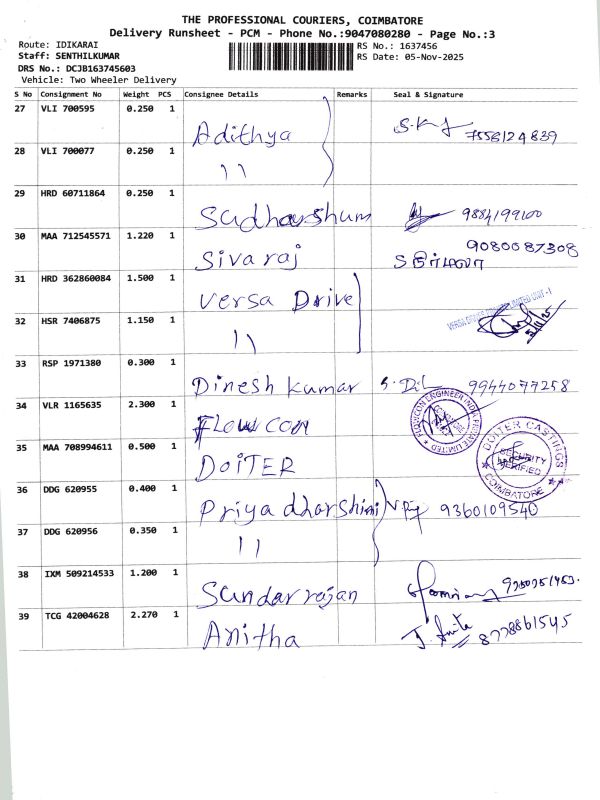 THE PROFESSIONAL COURIERS, COIMBATORE
Delivery Runsheet - PCM - Phone No.:9047080280 - Page No.:3
Route: IDIKARAI
RS No.: 1637456
Staff: SENTHILKUMAR
RS Date: 05-Nov-2025
DRS No.: DCJB163745603
Vehicle: Two Wheeler Delivery
S No Consignment No Weight PCS Consignee Details Remarks Seal & Signature
27 VLI 700595 0.250 1 Adithya 7556124839
28 VLI 700077 0.250 1 ))
29 HRD 60711864 0.250 1 Sudharshum 9884199100
30 MAA 712545571 1.220 1 Sivaraj 9080087308
31 HRD 362860084 1.500 1 Versa Drive
32 HSR 7406875 1.150 1 ))
33 RSP 1971380 0.300 1 Dinesh kumar 9944077258
34 VLR 1165635 2.300 1 Flowcon
35 MAA 708994611 0.500 1 DOITER
DOITER CASTINGS
SECURITY
VERIFIED
COIMBATORE
36 DDG 620955 0.400 1 Priyadharshini 9360109540
37 DDG 620956 0.350 1 ))
38 IXM 509214533 1.200 1 Sundarrajan
39 TCG 42004628 2.270 1 Anitha J. Anita 8778861545